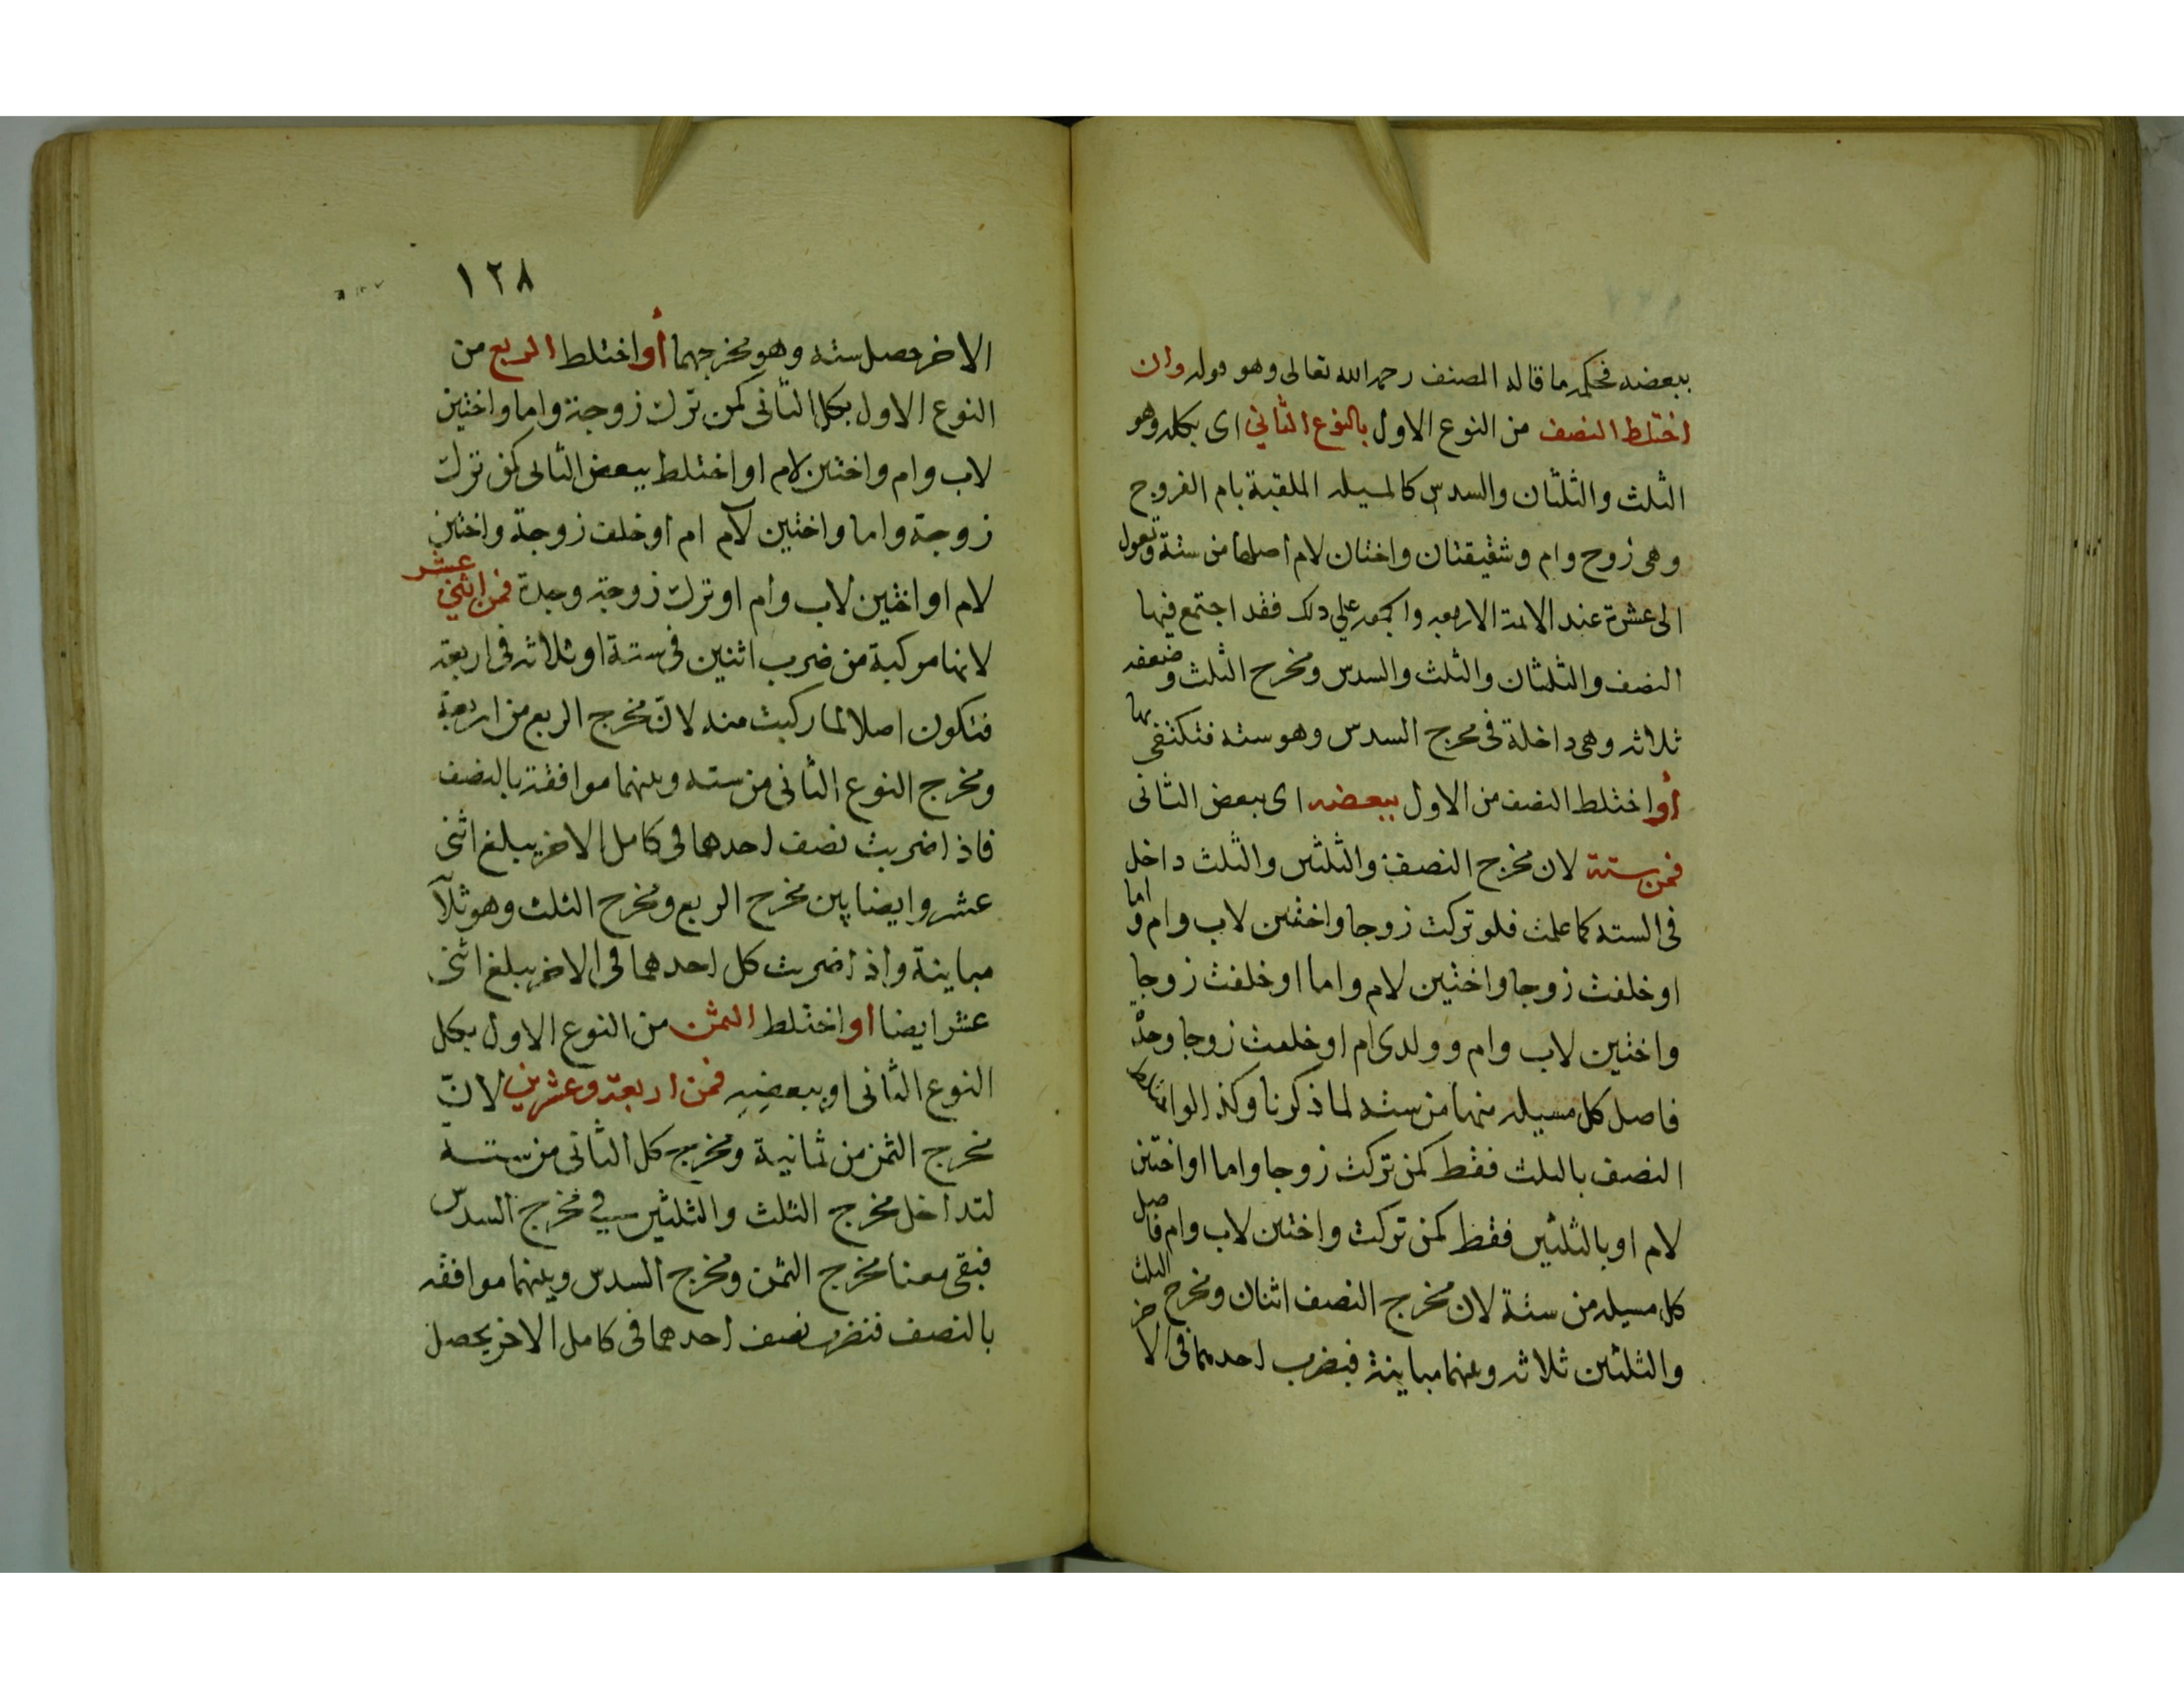 ببعضه فحكمه ما قاله المصنف رحمه الله تعالى وهو قوله وان
اختلط النصف من النوع الاول بالنوع الثاني اى بكله وهو
الثلث والثلثان والسدس كالمسيله الملقبة بام الفروج
وهى زوج وام وشقيقتان واختان لام اصلها من ستة وتعول
الى عشرة عند الائمة الاربعه على ذلك فقد اجتمع فيها
النصف والثلثان والثلث والسدس ومخرج الثلث وضعفه
ثلاثه وهى داخلة فى مخرج السدس وهو سته فنكتفى بها
أو اختلط النصف من الاول ببعضه اى ببعض الثانى
فمن ستة لان مخرج النصف والثلثين والثلث داخل
فى السته كما علمت فلو تركت زوجا واختين لاب وام واما
او خلفت زوجا واختين لام واما او خلفت زوجا
واختين لاب وام وولدى ام او خلفت زوجا وجدة
فاصل كل مسيله منها من سته لما ذكرنا وكذا لو اختلط
النصف بالثلث فقط كمن تركت زوجا واما او اختين
لام او بالثلثين فقط كمن تركت واختين لاب وام فاصل
كل مسيله من ستة لان مخرج النصف اثنان ومخرج الثلث
والثلثين ثلاثه وبينهما مباينة فبضرب احدهما فى الاخر
١٢٨
الاخر حصل سته وهو مخرجهما أو اختلط الربع من
النوع الاول بكل الثانى كمن ترك زوجة واما واختين
لاب وام واختين لام او اختلط ببعض الثانى كمن ترك
زوجة واما واختين لام ام او خلف زوجة واختين
لام او اختين لاب وام او ترك زوجة وجدة فمن اثني عشر
لانها مركبة من ضرب اثنين فى ستة او ثلاثه فى اربعة
فتكون اصلا لما ركبت منه لانّ مخرج الربع من اربعة
ومخرج النوع الثانى من سته وبينهما موافقة بالنصف
فاذا ضربت نصف احدهما فى كامل الاخر يبلغ اثنى
عشر وايضا بين مخرج الربع ومخرج الثلث وهو ثلآ
مباينة واذا ضربت كل احدهما فى الاخر يبلغ اثنى
عشر ايضا او اختلط الثمن من النوع الاول بكل
النوع الثانى او ببعضِهِ فمن اربعة وعشرين لانّ
مخرج الثمن من ثمانية ومخرج كل الثانى من ستة
لتداخل مخرج الثلث والثلثين في مخرج السدس
فبقى معنا مخرج الثمن ومخرج السدس وبينهما موافقه
بالنصف فنضرب نصف احدهما فى كامل الاخر يحصل